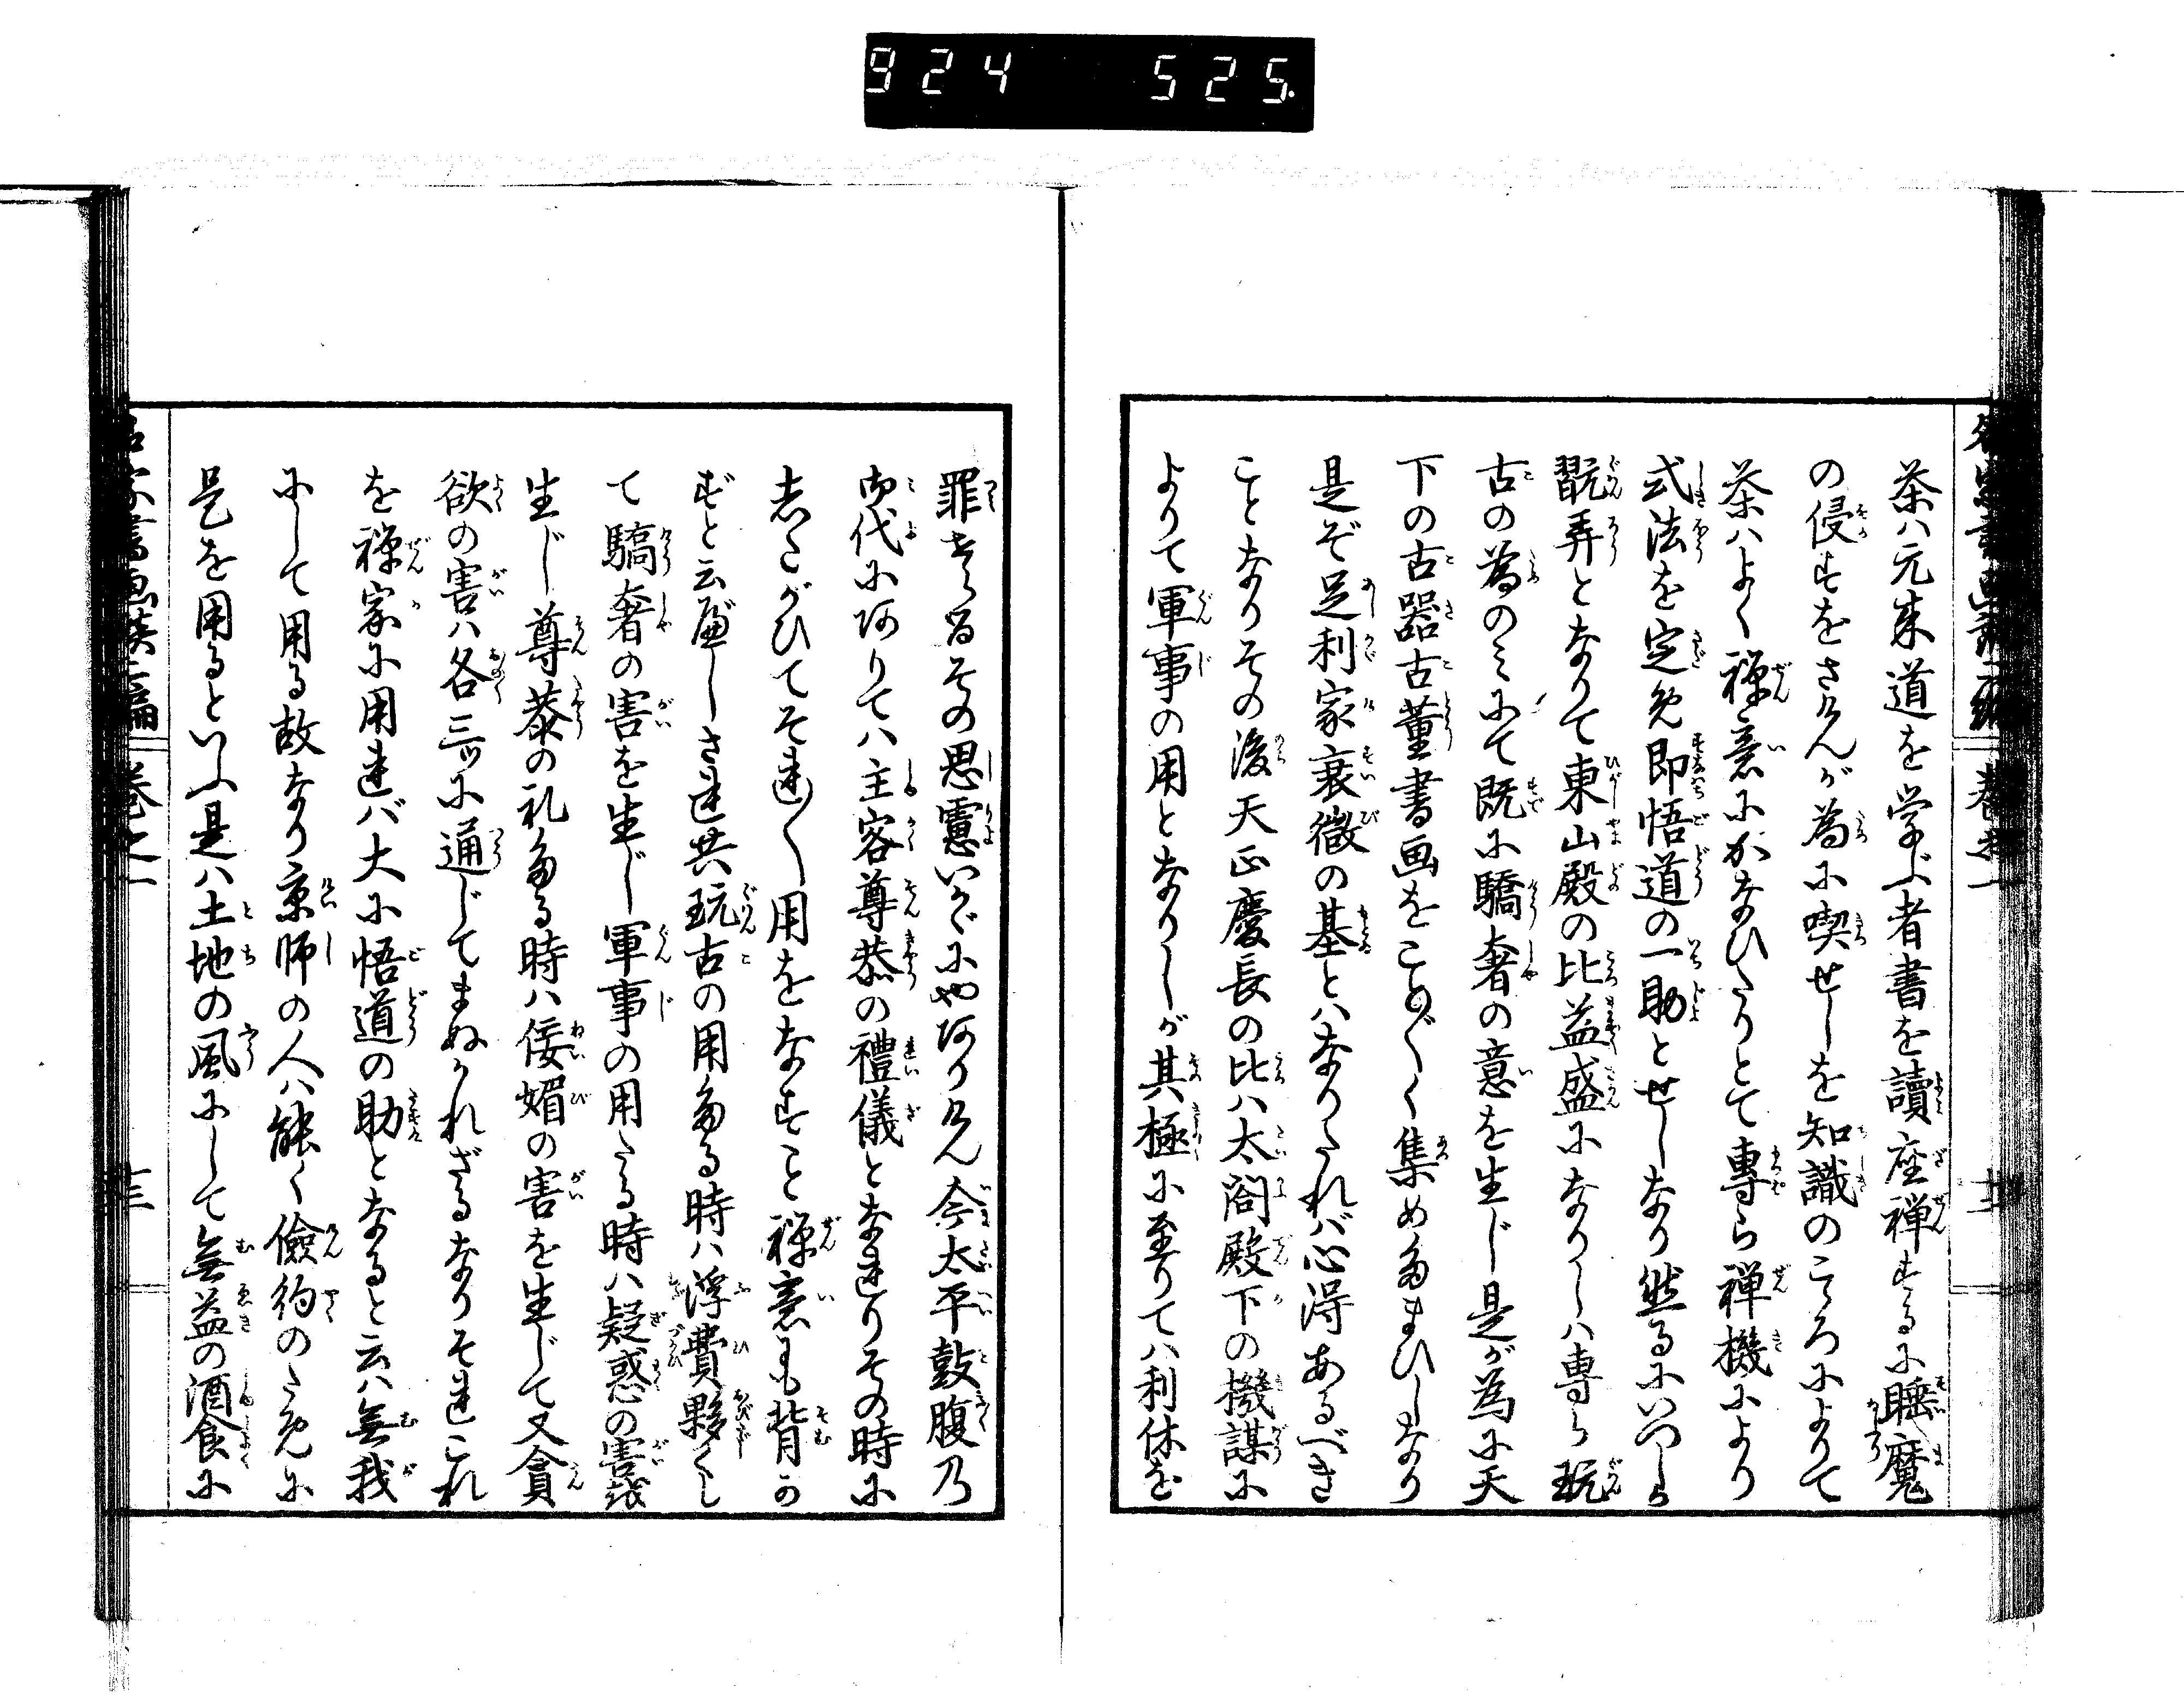 924 525.
茶ハ元来道を学ふ者書を讀座禅するに睡魔
の侵すをさけんが為に喫せしを知識のこゝろによりて
茶ハよく禅意にかなひたりとて專ら禅機により
式法を定め即悟道の一助とせしなり然るにいつしら
翫弄となりて東山殿の比益盛になりしハ専ら玩
古の為のミにて既に驕奢の意を生じ是が為に天
下の古器古董書画をこと〴〵く集め給まひしなり
是ぞ足利家衰微の基とハなりたれバ心得あるべき
ことなりその後天正慶長の比ハ太閤殿下の機謀に
よりて軍事の用となりしが其極に至りてハ利休を
罪せるその思慮いかにやありけん今太平鼓腹乃
御代にありてハ主客尊恭の禮儀となれりその時に
志たがひてそれ〳〵用をなすこと禅意にも背か
ずと云べしされ共玩古の用なる時ハ浮費夥くし
て驕奢の害を生じ軍事の用たる時ハ疑惑の害を
生じ尊恭の礼なる時ハ佞媚の害を生じて又貪
欲の害ハ各三ツに通じてまぬかれざるなりそれこれ
を禅家に用れバ大に悟道の助となると云ハ無我
にして用る故なり京师の人ハ能く儉約のために
是を用るといふ是ハ土地の風にして無益の酒食に
名家書画談二編 巻之一